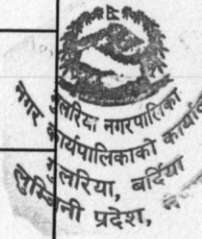 गुलरिया नगरपालिका
नगर कार्यपालिकाको कार्यालय
गुलरिया, बर्दिया
लुम्बिनी प्रदेश,